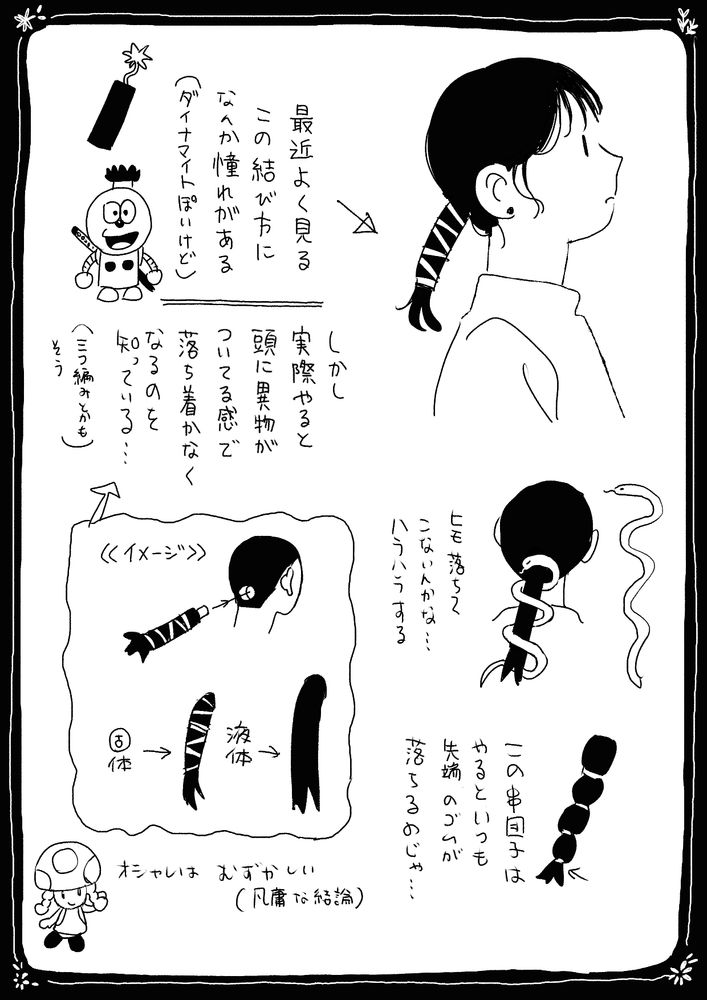 最近よく見る
この結び方に
なんか憧れがある
(ダイナマイトぽいけど)
しかし
実際やると
頭に異物が
ついてる感で
落ち着かなく
なるのを
知っている…
(三つ編みとかも
そう)
ヒモ落ちて
こないんかな…
ハラハラする
《イメージ》
固体→
液体→
この串団子は
やるといつも
先端のゴムが
落ちるのじゃ…
オシャレは むずかしい
(凡庸な結論)